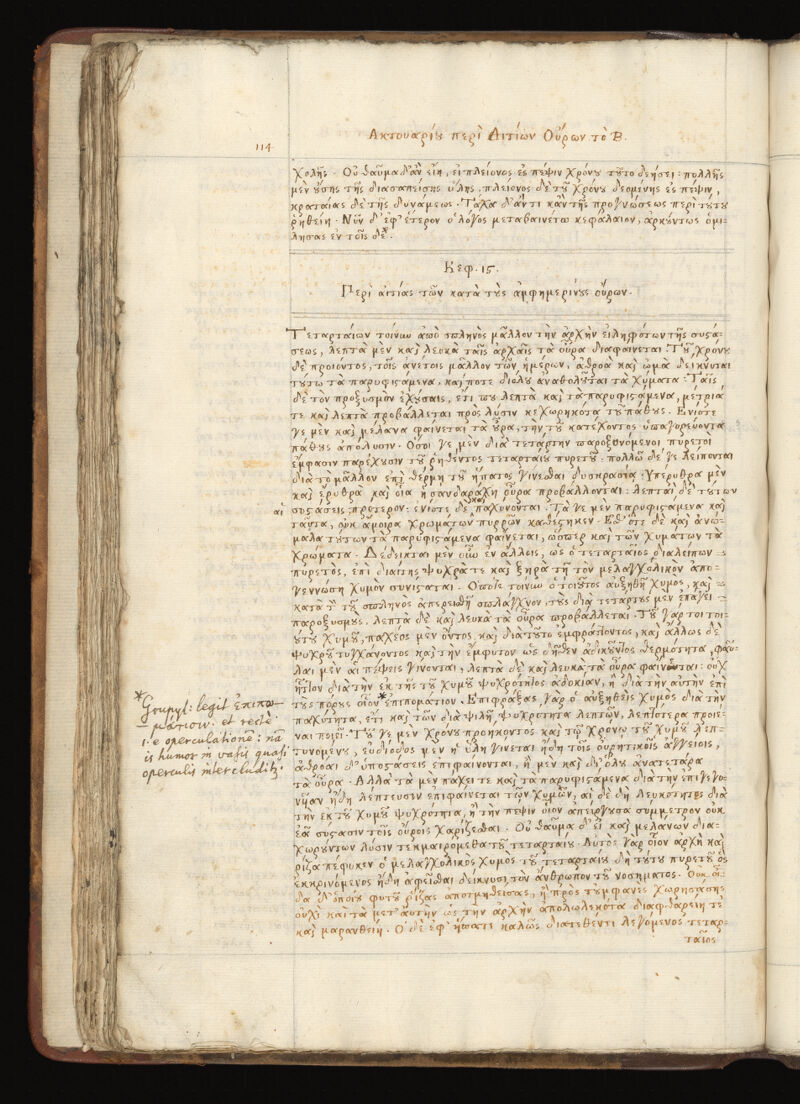 114
Ακτουαρίου περὶ Αιτίων Ούρων το Β.
χολῆς. Οὐ θαῦμα δ' ἂν εἴη, εἰ πλείονος ἐς πέψιν χρόνου τοῦτο δεήσει: πολλῆς
μὲν οὔσης τῆς διασαπείσης ὕλης, πλείονος δὲ τοῦ χρόνου δεομένης ἐς πέψιν,
κραταιᾶς δὲ τῆς δυνάμεως. Τάχα δ' ἄν τι κἂν τῆς προγνώσεως περὶ τούτου
ῥηθείη. Νῦν δ' ἐφ' ἕτερον ὁ λόγος μεταβαινέτω κεφάλαιον, ἀρκούντως ὁμι-
λήσας ἐν τοῖς δέ.
Κεφ. 15.
Περὶ αἰτίας τῶν κατὰ τοὺς ἀμφημερινοὺς οὔρων.
Τεταρταίων τοίνυν ἀπὸ σπληνὸς μᾶλλον τὴν ἀρχὴν εἰληφότων τῆς συστά-
σεως, λεπτὰ μὲν καὶ λευκὰ ταῖς ἀρχαῖς τὰ οὖρα διαφαίνεται: Τοῦ χρόνου
δὲ προιόντος, τοῖς ἀνέτοις μᾶλλον τῶν ἡμερῶν, ἁδρὰ καὶ ὠμὰ δείκνυται
τούτω τὰ παρυφιστάμενα, καί ποτε διόλου ἀναθολοῦται τὰ χύματα: Ταῖς
δὲ τὸν προξυσμὸν ἐχούσαις, ἔτι που λεπτὰ καὶ τὰ παρυφιστάμενα, μέτρια
τε καὶ λεπτὰ προβάλλεται πρὸς λύσιν κεχωρηκότα τοῦ πάθους. Ενίοτε
γε μὲν καὶ μέλανα φαίνεται τὰ οὖρα, τὴν τοῦ κατέχοντος ὑπαγορεύοντα
πάθους ἀπόλυσιν. Οσοι γε μὲν διὰ τετάρτην παροξυνόμενοι πυρετοὶ
ἔμφασιν παρέχουσιν τοῦ ῥηθέντος τεταρταίου πυρετοῦ. πολλῷ δέ γε λείπονται
διὰ τὸ μᾶλλον ἐπὶ θερμῇ τοῦ ἥπατος γίνεσθαι δυσκρασίᾳ. Υπέρυθρα μὲν
καὶ ἐρυθρὰ καὶ οἷα ἡ σανδαράχη οὖρα προβάλλονται: λεπταὶ δὲ τούτων
αἱ συστάσεις πρότερον: ἐνίοτε δὲ καὶ παχύνονται. Τὰ γε μὲν παρυφιστάμενα καὶ
ταῦτα, οὐκ ἄμοιρα χρωμάτων πυρρῶν καθέστηκεν. Εσθ' ὅτε δὲ καὶ ἀνώ-
μαλα τούτων τὰ παρυφιστάμενα φαίνεται, ὥσπερ καὶ τῶν χυμάτων τὰ
χρώματα. Δέδεικται μὲν οὖν ἐν ἄλλοις, ὡς ὁ τεταρταῖος διαλείπων
πυρετὸς, ἐπὶ διαίτης ψυχρᾶς τε καὶ ξηρᾶς τῇ τὸν μελαγχολικὸν ἀπο-
γεννώσῃ χυμὸν συνίσταται. Οπότε τοίνυν ὁ τοιοῦτος αὐξηθῇ χυμὸς, καὶ
κατά τι τοῦ σπληνὸς ἀπερεισθῇ σπλάγχνον, τοὺς διὰ τετάρτης μὲν ἐπάγει
παροξυσμούς, λεπτὰ δὲ καὶ λευκὰ τὰ οὖρα προβάλλεται. Τοῦ γάρ τοι τοι-
ούτου χυμοῦ, παχέος μὲν ὄντος, καὶ διὰ τοῦτο ἐμφράττοντος, καὶ ἄλλως δὲ
ψυχροῦ τυγχάνοντος καὶ τὴν ἔμφυτον ὡς δῆθεν ἀδικοῦντος θερμότητα, φαῦ-
λαι μὲν αἱ πέψεις γίνονται, λεπτὰ δὲ καὶ λευκὰ τὰ οὖρα φαίνονται: οὐχ
ἧττον διὰ τὴν ἐκ τῆς τοῦ χυμοῦ ψυχρότητος ἀδοκίαν, ἢ διὰ τὴν αὐτὴν ἐπὶ
τοὺς πόρους οἷον * ἐπιπομάτιον. Επιφράξας γὰρ ὁ αὐξηθεὶς χυμὸς διὰ τὴν
παχύτητα, ἔτι καὶ τῶν διὰ ψιλὴν ψυχρότητα λεπτῶν, λεπτότερα προιέ-
ναι ποιεῖ. Τοῦ γε μὲν χρόνου προήκοντος καὶ τῷ χρόνῳ τοῦ χυμοῦ λεπ-
τυνομένου, εὐδίοδος μὲν ἡ ὕλη γίνεται ἤδη τοῖς οὐρητικοῖς ἀγγείοις,
ἁθρόαι δ' ὑποστάσεις ἐπιφαίνονται, ἢ μὲν καὶ δι' ὅλου ἀνατέταρα
τὰ οὖρα. Αλλὰ τὰ μὲν πάχει τε καὶ τὰ παρυφιστάμενα διὰ τὴν ἐπιγεγο-
νυῖαν ἤδη λέπτευσιν ἐπιφαίνεται τῶν χυμῶν, αἱ δὲ δὴ λευκότητες διὰ
τὴν ἐκ τοῦ χυμοῦ ψυχρότητα, ἢ τὴν πέψιν οἷον ἀπείργουσα σύμμετρον οὐκ
ἐᾷ σύστασιν τοῖς οὔροις χαρίζεσθαι. Οὐ θαῦμα δ' εἰ καὶ μελάνων δια-
χωρούντων λύσιν τεκμαιρόμεθα τοῦ τεταρταίου. Αὐτὸς γὰρ οἷον ἀρχὴ καὶ
ῥίζα πέφυκεν ὁ μελαγχολικὸς χυμὸς τοῦ τεταρταίου δὴ τούτου πυρετοῦ ὃς
ἐκκρινόμενος ἤδη ἀφεῖσθαι δείκνυσι τὸν ἄνθρωπον τοῦ νοσήματος. Οὐκ οἶ-
δα δ' ὁποίου φυτοῦ ῥίζας ἀποτμηθείσας, ἢ πρὸς τοὐμφανὲς χωρησάσης
οὐχὶ καὶ τὰ μετ' αὐτὴν ὡς τὴν ἀρχὴν ἀπολωλεκότα διαφθαρείη τε
καὶ μαρανθείη. Ο δὲ ἐφ' ἥπατι κακῶς διατεθέντι λεγόμενος τεταρ-
ταῖος
* Goupyl: legit ἐπιπω-
μάτισιν. et rectè
i.e operculationē: nā
is humor in vasis quasi
operculis intercluditr.